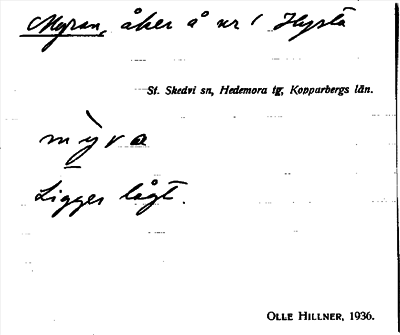 Myran, åker å nr 1 Hysta
St. Skedvi sn, Hedemora tg, Kopparbergs län.
mỳra
Ligger lågt.
OLLE HILLNER, 1936.